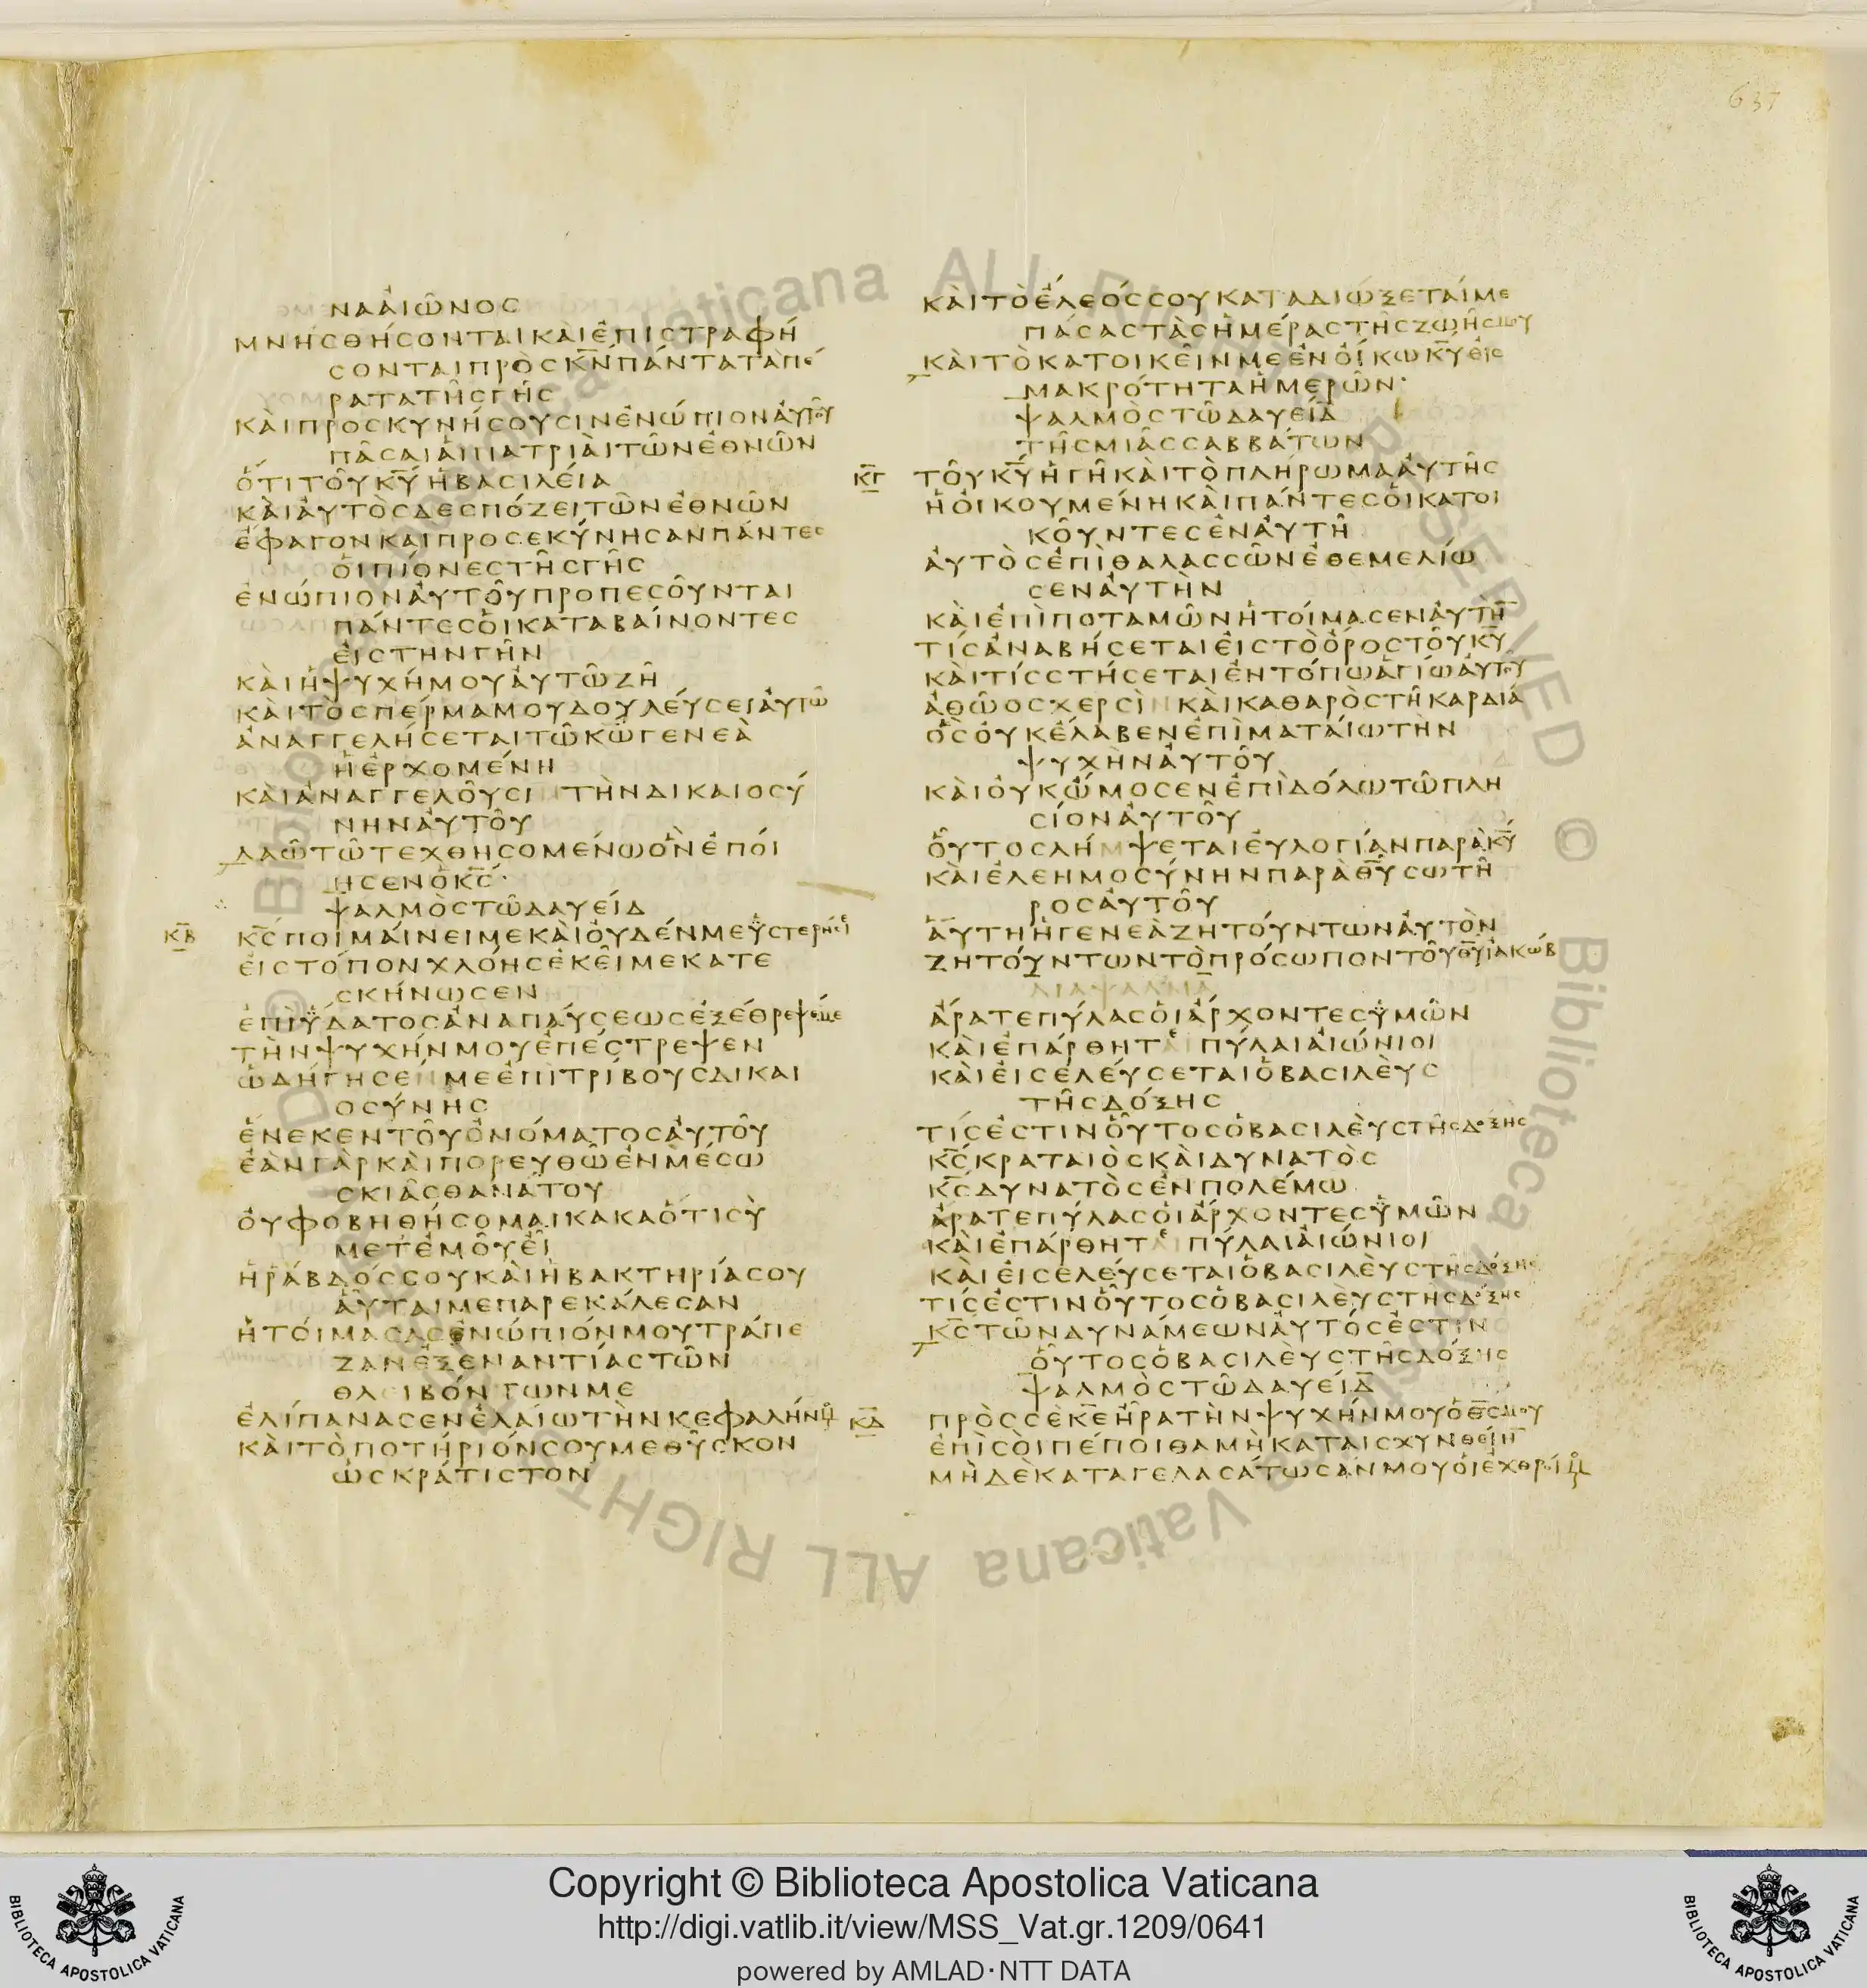 637
ΝΑΑΙΩΝΟϹ
ΜΝΗϹΘΗϹΟΝΤΑΙΚΑΙΕΠΙϹΤΡΑΦΗ
ϹΟΝΤΑΙΠΡΟϹΚ̅Ν̅ΠΑΝΤΑΤΑΠΕ
ΡΑΤΑΤΗϹΓΗϹ
ΚΑΙΠΡΟϹΚΥΝΗϹΟΥϹΙΝΕΝΩΠΙΟΝΑΥΤΟΥ
ΠΑϹΑΙΑΙΠΑΤΡΙΑΙΤΩΝΕΘΝΩΝ
ΟΤΙΤΟΥΚ̅Υ̅ΗΒΑϹΙΛΕΙΑ
ΚΑΙΑΥΤΟϹΔΕϹΠΟΖΕΙΤΩΝΕΘΝΩΝ
ΕΦΑΓΟΝΚΑΙΠΡΟϹΕΚΥΝΗϹΑΝΠΑΝΤΕϹ
ΟΙΠΙΟΝΕϹΤΗϹΓΗϹ
ΕΝΩΠΙΟΝΑΥΤΟΥΠΡΟΠΕϹΟΥΝΤΑΙ
ΠΑΝΤΕϹΟΙΚΑΤΑΒΑΙΝΟΝΤΕϹ
ΕΙϹΤΗΝΓΗΝ
ΚΑΙΗΨΥΧΗΜΟΥΑΥΤΩΖΗ
ΚΑΙΤΟϹΠΕΡΜΑΜΟΥΔΟΥΛΕΥϹΕΙΑΥΤΩ
ΑΝΑΓΓΕΛΗϹΕΤΑΙΤΩΚ̅Ω̅ΓΕΝΕΑ
ΗΕΡΧΟΜΕΝΗ
ΚΑΙΑΝΑΓΓΕΛΟΥϹΙΝΤΗΝΔΙΚΑΙΟϹΥ
ΝΗΝΑΥΤΟΥ
ΛΑΩΤΩΤΕΧΘΗϹΟΜΕΝΩΟΝΕΠΟΙ
ΗϹΕΝΟΚ̅Ϲ̅·
ΨΑΛΜΟϹΤΩΔΑΥΕΙΔ
Κ̅Β̅ Κ̅Ϲ̅ΠΟΙΜΑΙΝΕΙΜΕΚΑΙΟΥΔΕΝΜΕΥϹΤΕΡΗϹΕΙ
ΕΙϹΤΟΠΟΝΧΛΟΗϹΕΚΕΙΜΕΚΑΤΕ
ϹΚΗΝΩϹΕΝ
ΕΠΙΥΔΑΤΟϹΑΝΑΠΑΥϹΕΩϹΕΞΕΘΡΕΨΕΜΕ
ΤΗΝΨΥΧΗΝΜΟΥΕΠΕϹΤΡΕΨΕΝ
ΩΔΗΓΗϹΕΝΜΕΕΠΙΤΡΙΒΟΥϹΔΙΚΑΙ
ΟϹΥΝΗϹ
ΕΝΕΚΕΝΤΟΥΟΝΟΜΑΤΟϹΑΥΤΟΥ
ΕΑΝΓΑΡΚΑΙΠΟΡΕΥΘΩΕΝΜΕϹΩ
ϹΚΙΑϹΘΑΝΑΤΟΥ
ΟΥΦΟΒΗΘΗϹΟΜΑΙΚΑΚΑΟΤΙϹΥ
ΜΕΤΕΜΟΥΕΙ
ΗΡΑΒΔΟϹϹΟΥΚΑΙΗΒΑΚΤΗΡΙΑϹΟΥ
ΑΥΤΑΙΜΕΠΑΡΕΚΑΛΕϹΑΝ
ΗΤΟΙΜΑϹΑϹΕΝΩΠΙΟΝΜΟΥΤΡΑΠΕ
ΖΑΝΕΞΕΝΑΝΤΙΑϹΤΩΝ
ΘΛΕΙΒΟΝΤΩΝΜΕ
ΕΛΙΠΑΝΑϹΕΝΕΛΑΙΩΤΗΝΚΕΦΑΛΗΝΜΟΥ
ΚΑΙΤΟΠΟΤΗΡΙΟΝϹΟΥΜΕΘΥϹΚΟΝ
ΩϹΚΡΑΤΙϹΤΟΝ
ΚΑΙΤΟΕΛΕΟϹϹΟΥΚΑΤΑΔΙΩΞΕΤΑΙΜΕ
ΠΑϹΑϹΤΑϹΗΜΕΡΑϹΤΗϹΖΩΗϹΜΟΥ
ΚΑΙΤΟΚΑΤΟΙΚΕΙΝΜΕΕΝΟΙΚΩΚ̅Υ̅ΕΙϹ
ΜΑΚΡΟΤΗΤΑΗΜΕΡΩΝ·
ΨΑΛΜΟϹΤΩΔΑΥΕΙΔ
ΤΗϹΜΙΑϹϹΑΒΒΑΤΩΝ
Κ̅Γ̅ ΤΟΥΚ̅Υ̅ΗΓΗΚΑΙΤΟΠΛΗΡΩΜΑΑΥΤΗϹ
ΗΟΙΚΟΥΜΕΝΗΚΑΙΠΑΝΤΕϹΟΙΚΑΤΟΙ
ΚΟΥΝΤΕϹΕΝΑΥΤΗ
ΑΥΤΟϹΕΠΙΘΑΛΑϹϹΩΝΕΘΕΜΕΛΙΩ
ϹΕΝΑΥΤΗΝ
ΚΑΙΕΠΙΠΟΤΑΜΩΝΗΤΟΙΜΑϹΕΝΑΥΤΗ̅
ΤΙϹΑΝΑΒΗϹΕΤΑΙΕΙϹΤΟΟΡΟϹΤΟΥΚ̅Υ̅
ΚΑΙΤΙϹϹΤΗϹΕΤΑΙΕΝΤΟΠΩΑΓΙΩΑΥΤΟΥ
ΑΘΩΟϹΧΕΡϹΙΝΚΑΙΚΑΘΑΡΟϹΤΗΚΑΡΔΙΑ
ΟϹΟΥΚΕΛΑΒΕΝΕΠΙΜΑΤΑΙΩΤΗΝ
ΨΥΧΗΝΑΥΤΟΥ
ΚΑΙΟΥΚΩΜΟϹΕΝΕΠΙΔΟΛΩΤΩΠΛΗ
ϹΙΟΝΑΥΤΟΥ
ΟΥΤΟϹΛΗΜΨΕΤΑΙΕΥΛΟΓΙΑΝΠΑΡΑΚ̅Υ̅
ΚΑΙΕΛΕΗΜΟϹΥΝΗΝΠΑΡΑΘ̅Υ̅ϹΩΤΗ
ΡΟϹΑΥΤΟΥ
ΑΥΤΗΗΓΕΝΕΑΖΗΤΟΥΝΤΩΝΑΥΤΟΝ
ΖΗΤΟΥΝΤΩΝΤΟΠΡΟϹΩΠΟΝΤΟΥΘ̅Υ̅ΙΑΚΩΒ
ΔΙΑΨΑΛΜΑ
ΑΡΑΤΕΠΥΛΑϹΟΙΑΡΧΟΝΤΕϹΥΜΩΝ
ΚΑΙΕΠΑΡΘΗΤΑΙΠΥΛΑΙΑΙΩΝΙΟΙ
ΚΑΙΕΙϹΕΛΕΥϹΕΤΑΙΟΒΑϹΙΛΕΥϹ
ΤΗϹΔΟΞΗϹ
ΤΙϹΕϹΤΙΝΟΥΤΟϹΟΒΑϹΙΛΕΥϹΤΗϹΔΟΞΗϹ
Κ̅Ϲ̅ΚΡΑΤΑΙΟϹΚΑΙΔΥΝΑΤΟϹ
Κ̅Ϲ̅ΔΥΝΑΤΟϹΕΝΠΟΛΕΜΩ
ΑΡΑΤΕΠΥΛΑϹΟΙΑΡΧΟΝΤΕϹΥΜΩΝ
ΚΑΙΕΠΑΡΘΗΤΑΙΠΥΛΑΙΑΙΩΝΙΟΙ
ΚΑΙΕΙϹΕΛΕΥϹΕΤΑΙΟΒΑϹΙΛΕΥϹΤΗϹΔΟΞΗϹ
ΤΙϹΕϹΤΙΝΟΥΤΟϹΟΒΑϹΙΛΕΥϹΤΗϹΔΟΞΗϹ
Κ̅Ϲ̅ΤΩΝΔΥΝΑΜΕΩΝΑΥΤΟϹΕϹΤΙΝ
ΟΥΤΟϹΟΒΑϹΙΛΕΥϹΤΗϹΔΟΞΗϹ
ΨΑΛΜΟϹΤΩΔΑΥΕΙΔ
Κ̅Δ̅ ΠΡΟϹϹΕΚ̅Ε̅ΗΡΑΤΗΝΨΥΧΗΝΜΟΥΟΘ̅Ϲ̅ΜΟΥ
ΕΠΙϹΟΙΠΕΠΟΙΘΑΜΗΚΑΤΑΙϹΧΥΝΘΕΙΗ̅
ΜΗΔΕΚΑΤΑΓΕΛΑϹΑΤΩϹΑΝΜΟΥΟΙΕΧΘΡΟΙΜΟΥ
Copyright © Biblioteca Apostolica Vaticana
http://digi.vatlib.it/view/MSS_Vat.gr.1209/0641
powered by AMLAD·NTT DATA
BIBLIOTECA APOSTOLICA VATICANA
BIBLIOTECA APOSTOLICA VATICANA